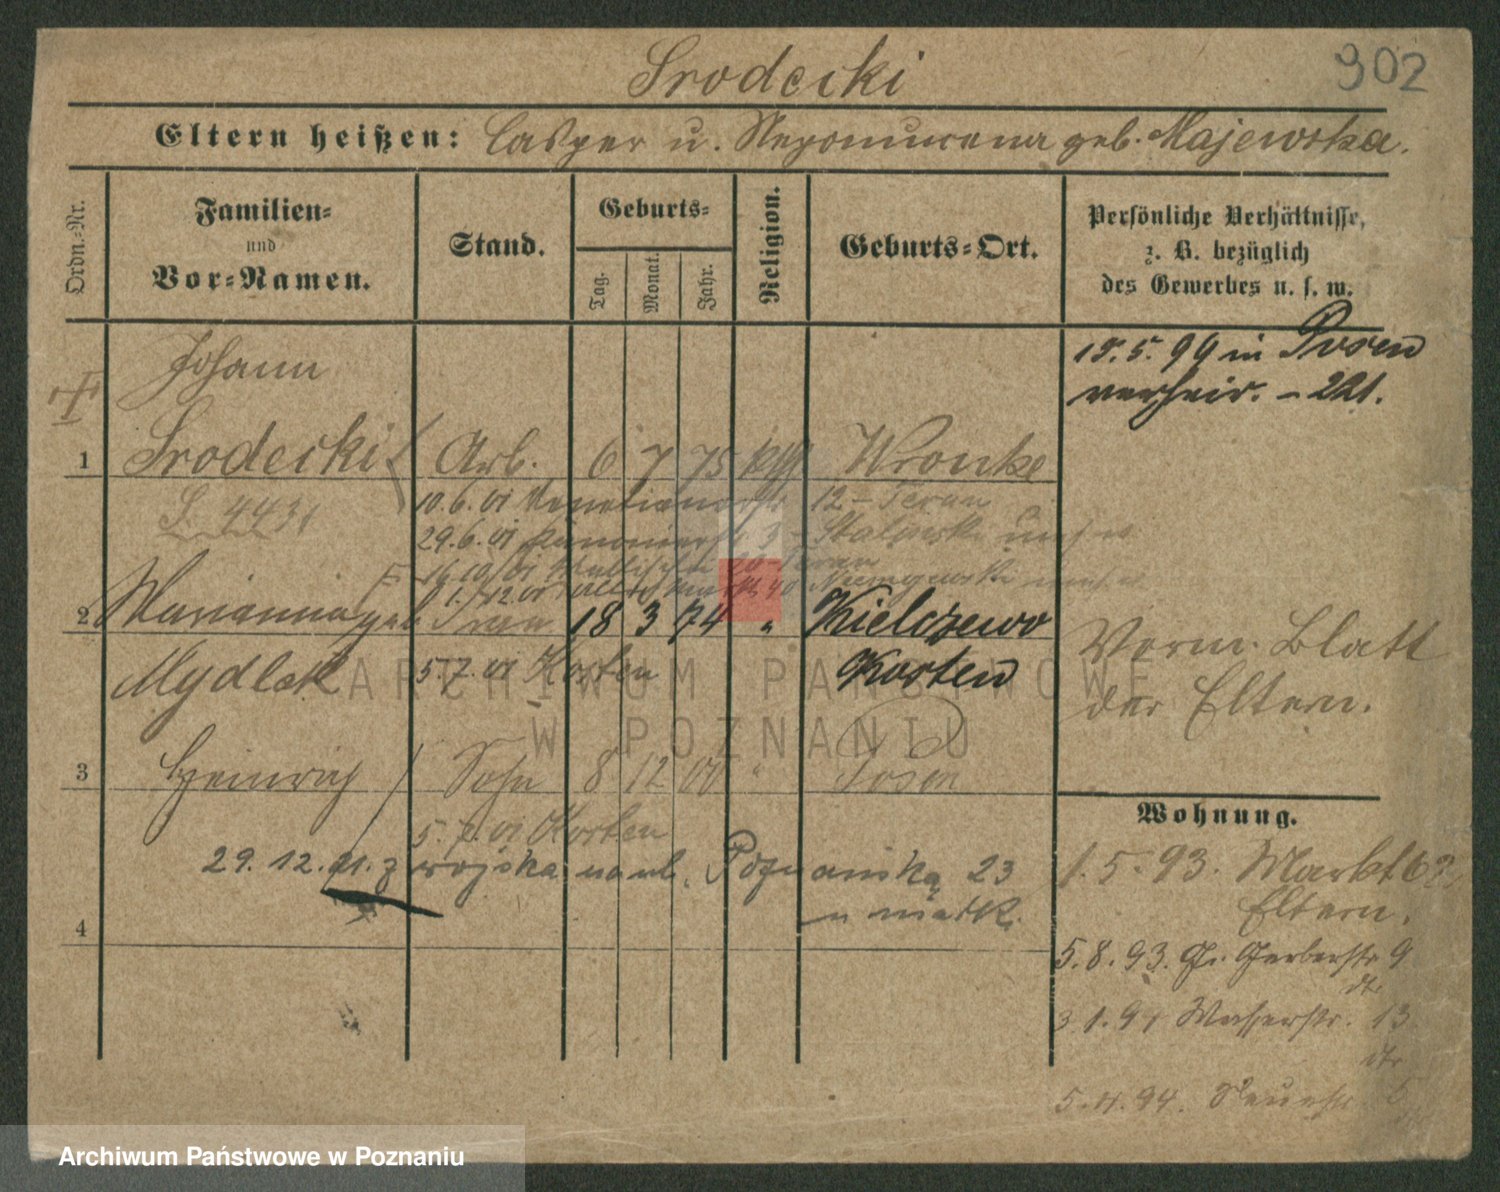 Srodecki
902
Eltern heißen: Casper u. Nepomucena geb. Majewska.
Ordn.-Nr.
Familien-
und
Vor-Namen.
Stand.
Geburts-
Tag.
Monat.
Jahr.
Religion.
Geburts-Ort.
Persönliche Verhältnisse,
z. B. bezüglich
des Gewerbes u. s. w.
Johann
15.5.99 in Posen
verheir.
1 Srodecki Arb. 6 7 75 kath Wronke
10.6.01 Venetianerstr 12
29.6.01 3
16.10.01 Wallischei
2 Marianna geb. Frau 18 3 74 " Kielczewo
Mydlak 5.7.01 Kosten Kosten
Vorm. Blatt
der Eltern.
3 Heinrich Sohn 8 12 00 " Posen
5.7.01 Kosten
29.12.21. z wojska na ul. Poznańską 23
u matki.
4
Wohnung.
1.5.93. Markt
Eltern.
5.8.93. Gr. Gerberstr 9
dto
3.1.94 Wasserstr. 13
dto
5.4.94. Neuestr.
ARCHIWUM PAŃSTWOWE
W POZNANIU
Archiwum Państwowe w Poznaniu